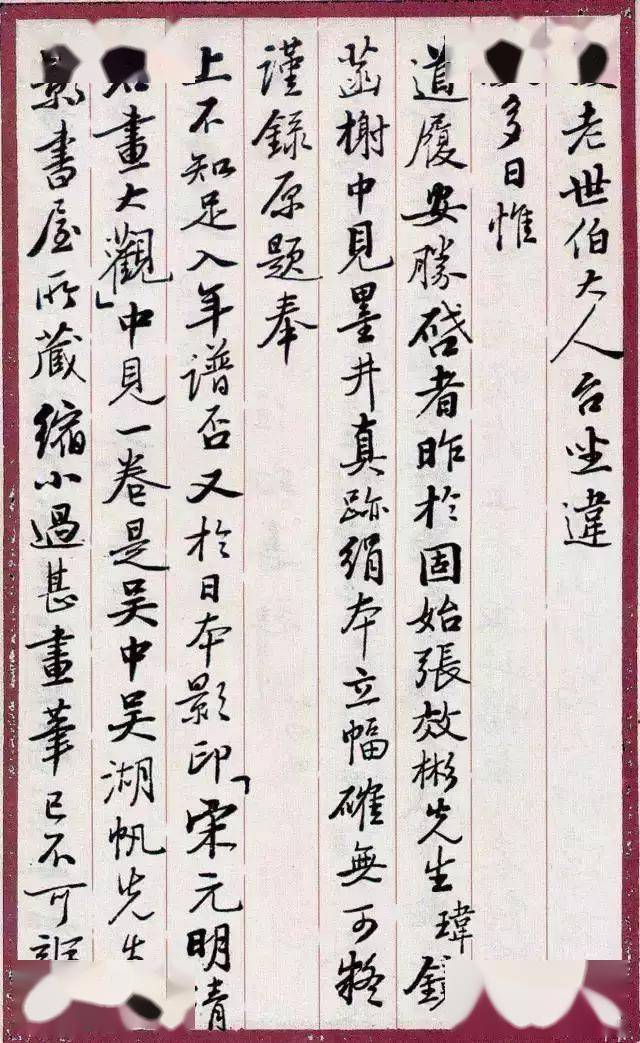 老世伯大人台坐違
多日惟
道履安勝啓者昨於固始張效彬先生瑋
菡榭中見墨井真跡絹本立幅確無可疑
謹錄原題奉
上不知足入年譜否又於日本影印「宋元明清
名畫大觀」中見一卷是吴中吴湖帆先生
景書屋所藏縮小過甚畫筆已不可